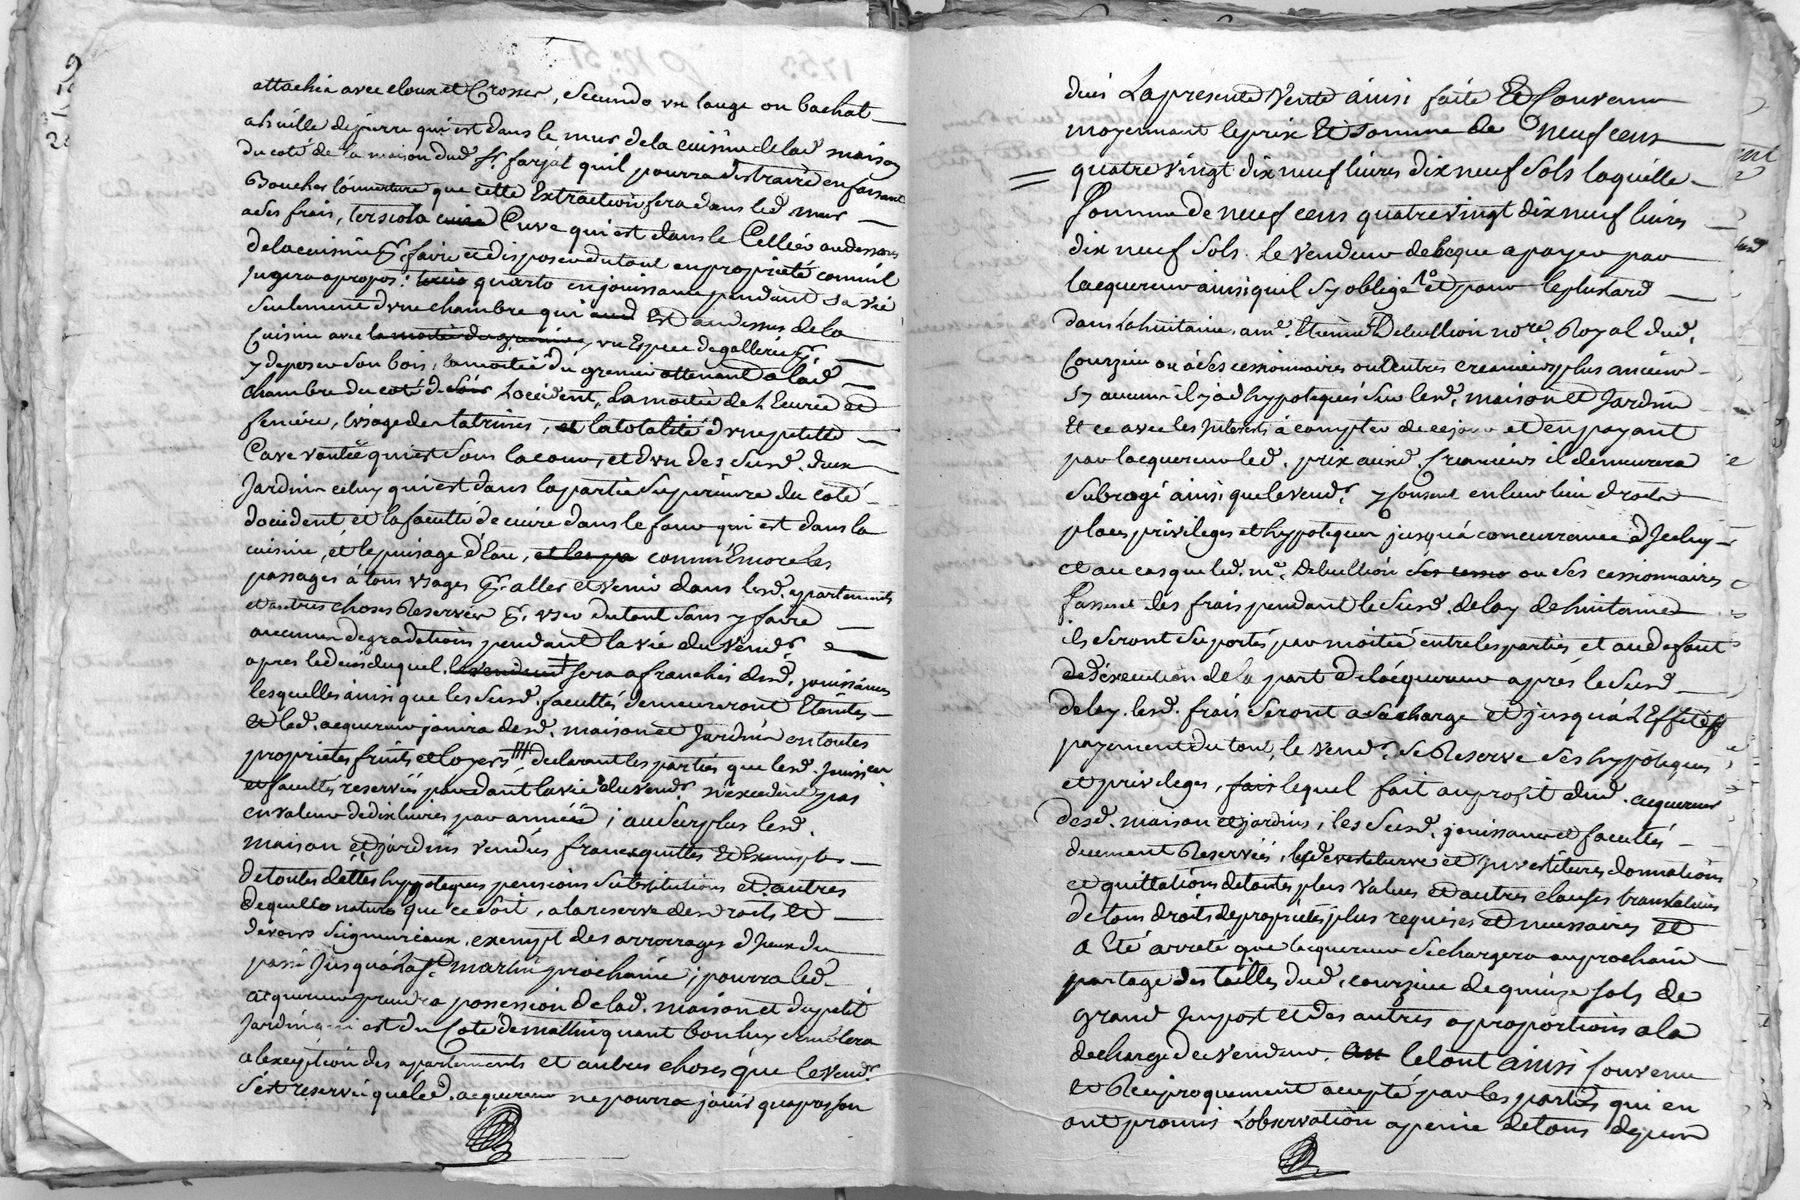 attachée avec cloux et Crosses, Secundo un lauge ou bachat
abeuille de pierre qui est dans le mur de la cuisine de lad maison
du coté de la maison dud Sr. farjat quil pourra distraire en faisant
Boucher louverture que cette Extraction fera dans led mur
a ses frais, tersio la Cuve qui est dans le Cellier au dessous
de la cuisine pr. faire et disposer du tout en propriété comme il
jugera apropos: quarto en jouissance pendant sa vie
seulement d'une chambre qui Est au dessus de la
Cuisine avec la moitié du grenier, un Espece de gallerie pr.
y deposer son bois, la moitié du grenier attenant a lad
chambre du coté de L'occident, la moitié de L'Ecurie et
feniere, l'usage des latrines, et la totalité d'une petite
Cave voutée qui est sous la cour, et d'un des susd. deux
Jardins celuy qui est dans la partie superieure du coté
doccident, et la faculté de cuire dans le four qui est dans la
cuisine, et le puisage d'Eau, et les pa comme Encore les
passages à tous usages pr. aller et venir dans lesd. apartements
et autres choses Reservées pr. user du tout sans y faire
aucunes degradations pendant la vie du vendr.
apres le deces duquel le vendeur sera afranchie desd. jouissances
lesquelles ainsi que les susd. facultés demeureront Eteintes
et led. acquereur jouira desd. maison et Jardin en toutes
proprietes fruits et loyers declarant les parties que lesd. jouissces
et facultés reservées pendant la vie du vendr n'excedent pas
en valeur de dix livres par année; au surplus lesd.
maison et jardins vendus francs quittes et Exempts
de toutes dettes hypoteques pensions substitutions et autres
de quelle nature que ce soit, a la reserve des droits et
devoirs seigneuriaux, exempt des arrerages d'Iceux du
passé jusqu'à la St martin prochaine; pourra led.
acquereur prendre possession de lad. maison et du petit
Jardin qui est du Coté de matin quant bon luy semblera
a lexception des apartements et autres choses que le vendr.
s'est reservé que led. acquereur ne pourra jouir qu'apres son
déces La presente Vente ainsi faite et Convenue
moyennant le prix Et somme de neuf cens
quatre vingt dix neuf livres dix neuf sols laquelle
somme de neuf cens quatre vingt dix neuf livres
dix neuf sols. le vendeur delegue a payer par
lacquereur ainsi quil s'y oblige et pour le plus tard
dans la huitaine, a me. Etienne Debullion nore. Royal dud.
Courzieu ou à ses cessionnaires ou d'autres creanciers plus anciens
sy aucun il y a d'hypotequés sur lesd. maison et Jardin
Et ce avec les Interets à compter de ce jour et en payant
par lacquereur led. prix auxd. creanciers il demeurera
subrogé ainsi que le vendr. y consent en leur lieu droits
places privileges et hypoteques jusqu'à concurrance d'Iceluy
et au cas que led. me. Debullion ses cessio ou ses cessionnaires
fassent des frais pendant le susd. delay de huitaine
ils seront suportés par moitié entre les parties et au defaut
d'execution de la part de l'acquereur après le susd
delay. lesd. frais seront a sa charge et jusqu'à L'Effectif
payement du tout, le vendr. se Reserve ses hypoteques
et privileges, fais lequel fait au profit dud. acquereur
desd. maison et jardins, les susd. jouissance et facultés
duement Reservées, led devestiture et Investiture, donnations
et quittations de toutes plus values et autres clauses translatives
de tous droits de proprietés plus requises et necessaires et
a Eté arreté que lacquereur se chargera au prochain
partage des tailles dud. courzieu de quinze sols de
grand Impost et des autres a proportions a la
decharge du vendeur, Le tout ainsi Convenu
et Reciproquement acepté par les parties qui en
ont promis L'observation a peine de tous depens